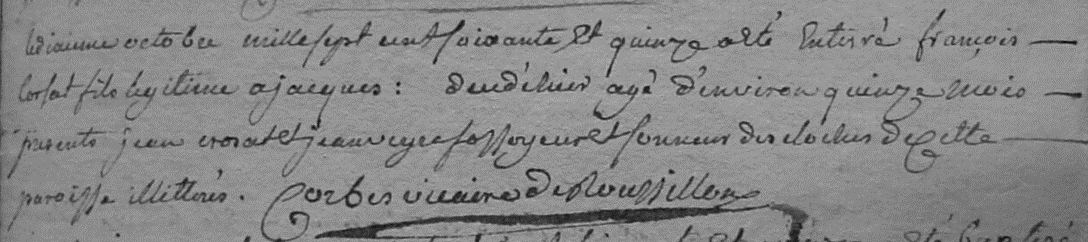 ledixieme octobre mille sept cent soixante et quinze a eté Enterré françois —
Corsat fils legitime a jacques : dudéhier agé d'environ quinze mois —
presents jean crosat et jean veyre fossoyeur et sonneur des cloches de Cette —
paroisse illiterés. Corbes vicaire de Roussillon